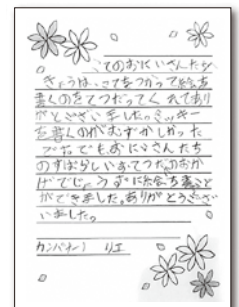 てのおにいさんたちへ
きょうは、こてをつかって絵を
書くのをてつだってくれてあり
がとございました。ミッキー
を書くのがむずかしかった
ですでもおにいさんたち
のすばらしいおてつだいのおか
げでじょうずに絵を書こと
ができました。ありがとうござ
いました。
カンバヤシ リエ